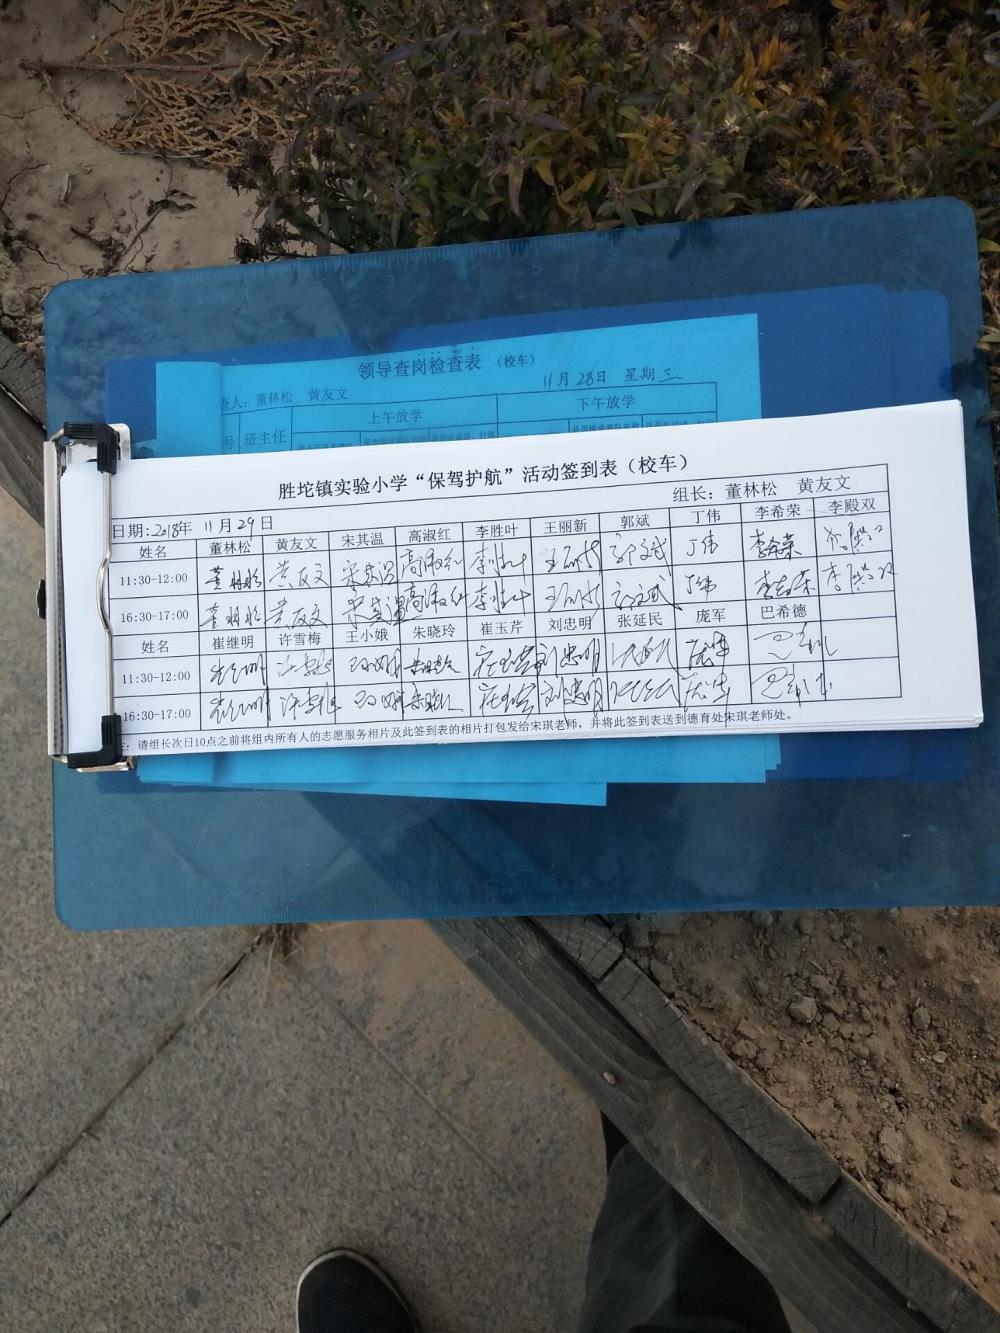 领导查岗检查表（校车）
11月28日 星期三
查人：董林松 黄友文
上午放学 下午放学
号 班主任
胜坨镇实验小学“保驾护航”活动签到表（校车）
组长：董林松 黄友文
日期:2018年 11月29日
姓名 董林松 黄友文 宋其温 高淑红 李胜叶 王丽新 郭斌 丁伟 李希荣 李殿双
11:30-12:00 董林松 黄友文 宋其温 高淑红 李胜叶 王丽新 郭斌 丁伟 李希荣 李殿双
16:30-17:00 董林松 黄友文 宋其温 高淑红 李胜叶 王丽新 郭斌 丁伟 李希荣 李殿双
姓名 崔继明 许雪梅 王小娥 朱晓玲 崔玉芹 刘忠明 张延民 庞军 巴希德
11:30-12:00 崔继明 许雪梅 王小娥 朱晓玲 崔玉芹 刘忠明 张延民 庞军
16:30-17:00 崔继明 许雪梅 王小娥 朱晓玲 崔玉芹 刘忠明 张延民 庞军
：请组长次日10点之前将组内所有人的志愿服务相片及此签到表的相片打包发给宋琪老师，并将此签到表送到德育处宋琪老师处。